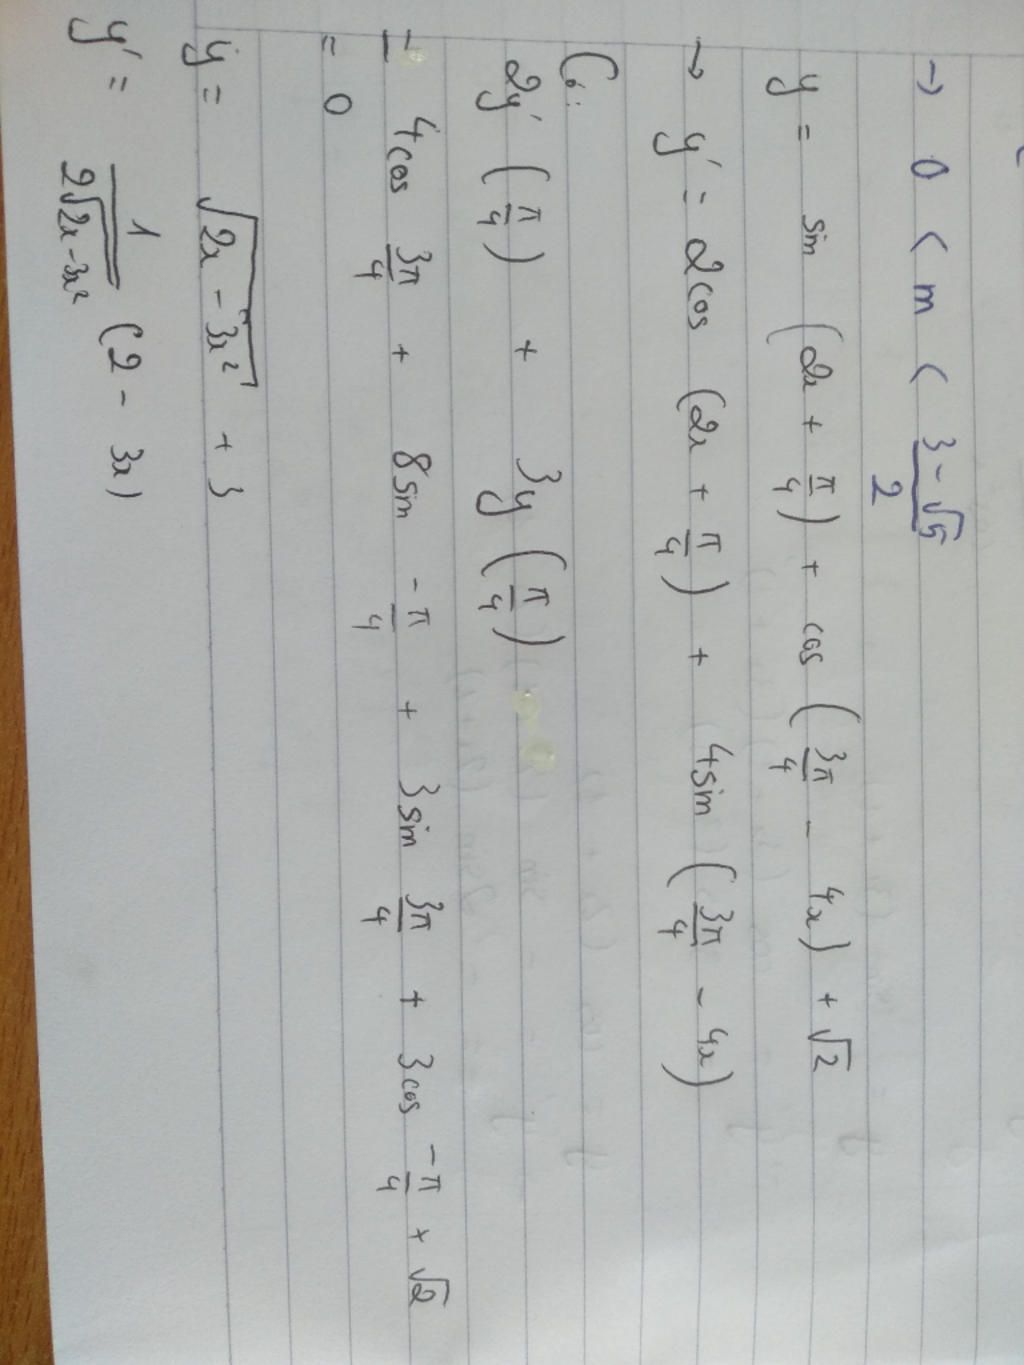 → 0 < m < (3 - √5)/2
y = sin (2x + π/4) + cos (3π/4 - 4x) + √2
→ y' = 2cos (2x + π/4) + 4sin (3π/4 - 4x)
Có:
2y' (π/4) + 3y (π/4)
= 4cos 3π/4 + 8sin -π/4 + 3sin 3π/4 + 3cos -π/4 + √2
= 0
y = √(2x - 3x²) + 3
y' = 1/(2√(2x - 3x²)) (2 - 3x)